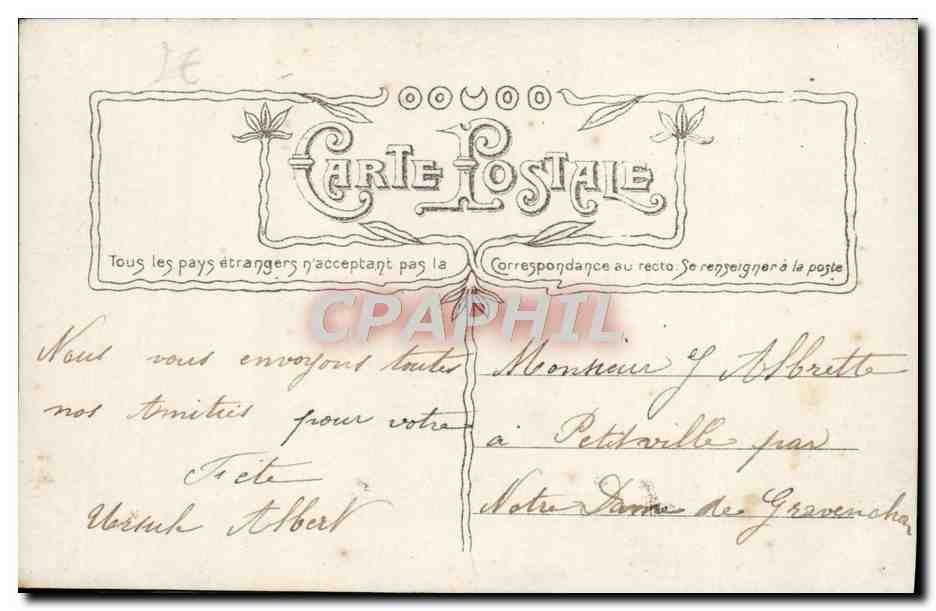 2€
CARTE POSTALE
Tous les pays étrangers n'acceptent pas la Correspondance au recto. Se renseigner à la poste
CPAPHIL
Nous vous envoyons toutes
nos Amitiés pour votre
Fête
Albert
Monsieur Albrette
à Petitville par
Notre Dame de Gravenchon